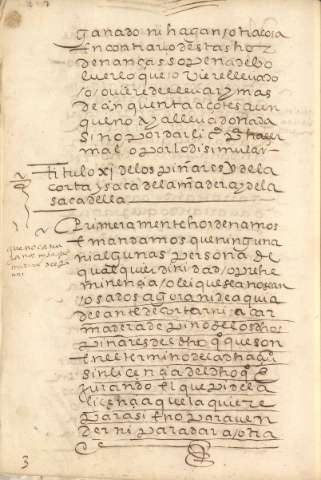 ganado ni hagan /o/ tra cosa
en contrario destas hor
denanças so pena de bo
luer lo que /o/ viere lleuado
/o/ ouiere de lleuar y mas
de cinquenta açotes aun
que no aya lleuado nada
sino por dar liça pa hazer
mal o por lo disimular
Titulo xj de los piñares y de la
corta y saca de la madera y de la
saca della
Primeramente hordenamos
E mandamos que ninguna
ni algunas persona de
qualquier dinidad /o/ prehe
minençia /o/ lei que sea no sean
/o/sados agora ni de aqui a
delante de cortar ni sacar
madera de pino de los dhos
pinares desta que son
En el termino de la dha
sin liçençia del dho
Jurando El que pide la
liçençia que la quiere
para si E no para ven
der ni para dar a /o/tra
que no
3